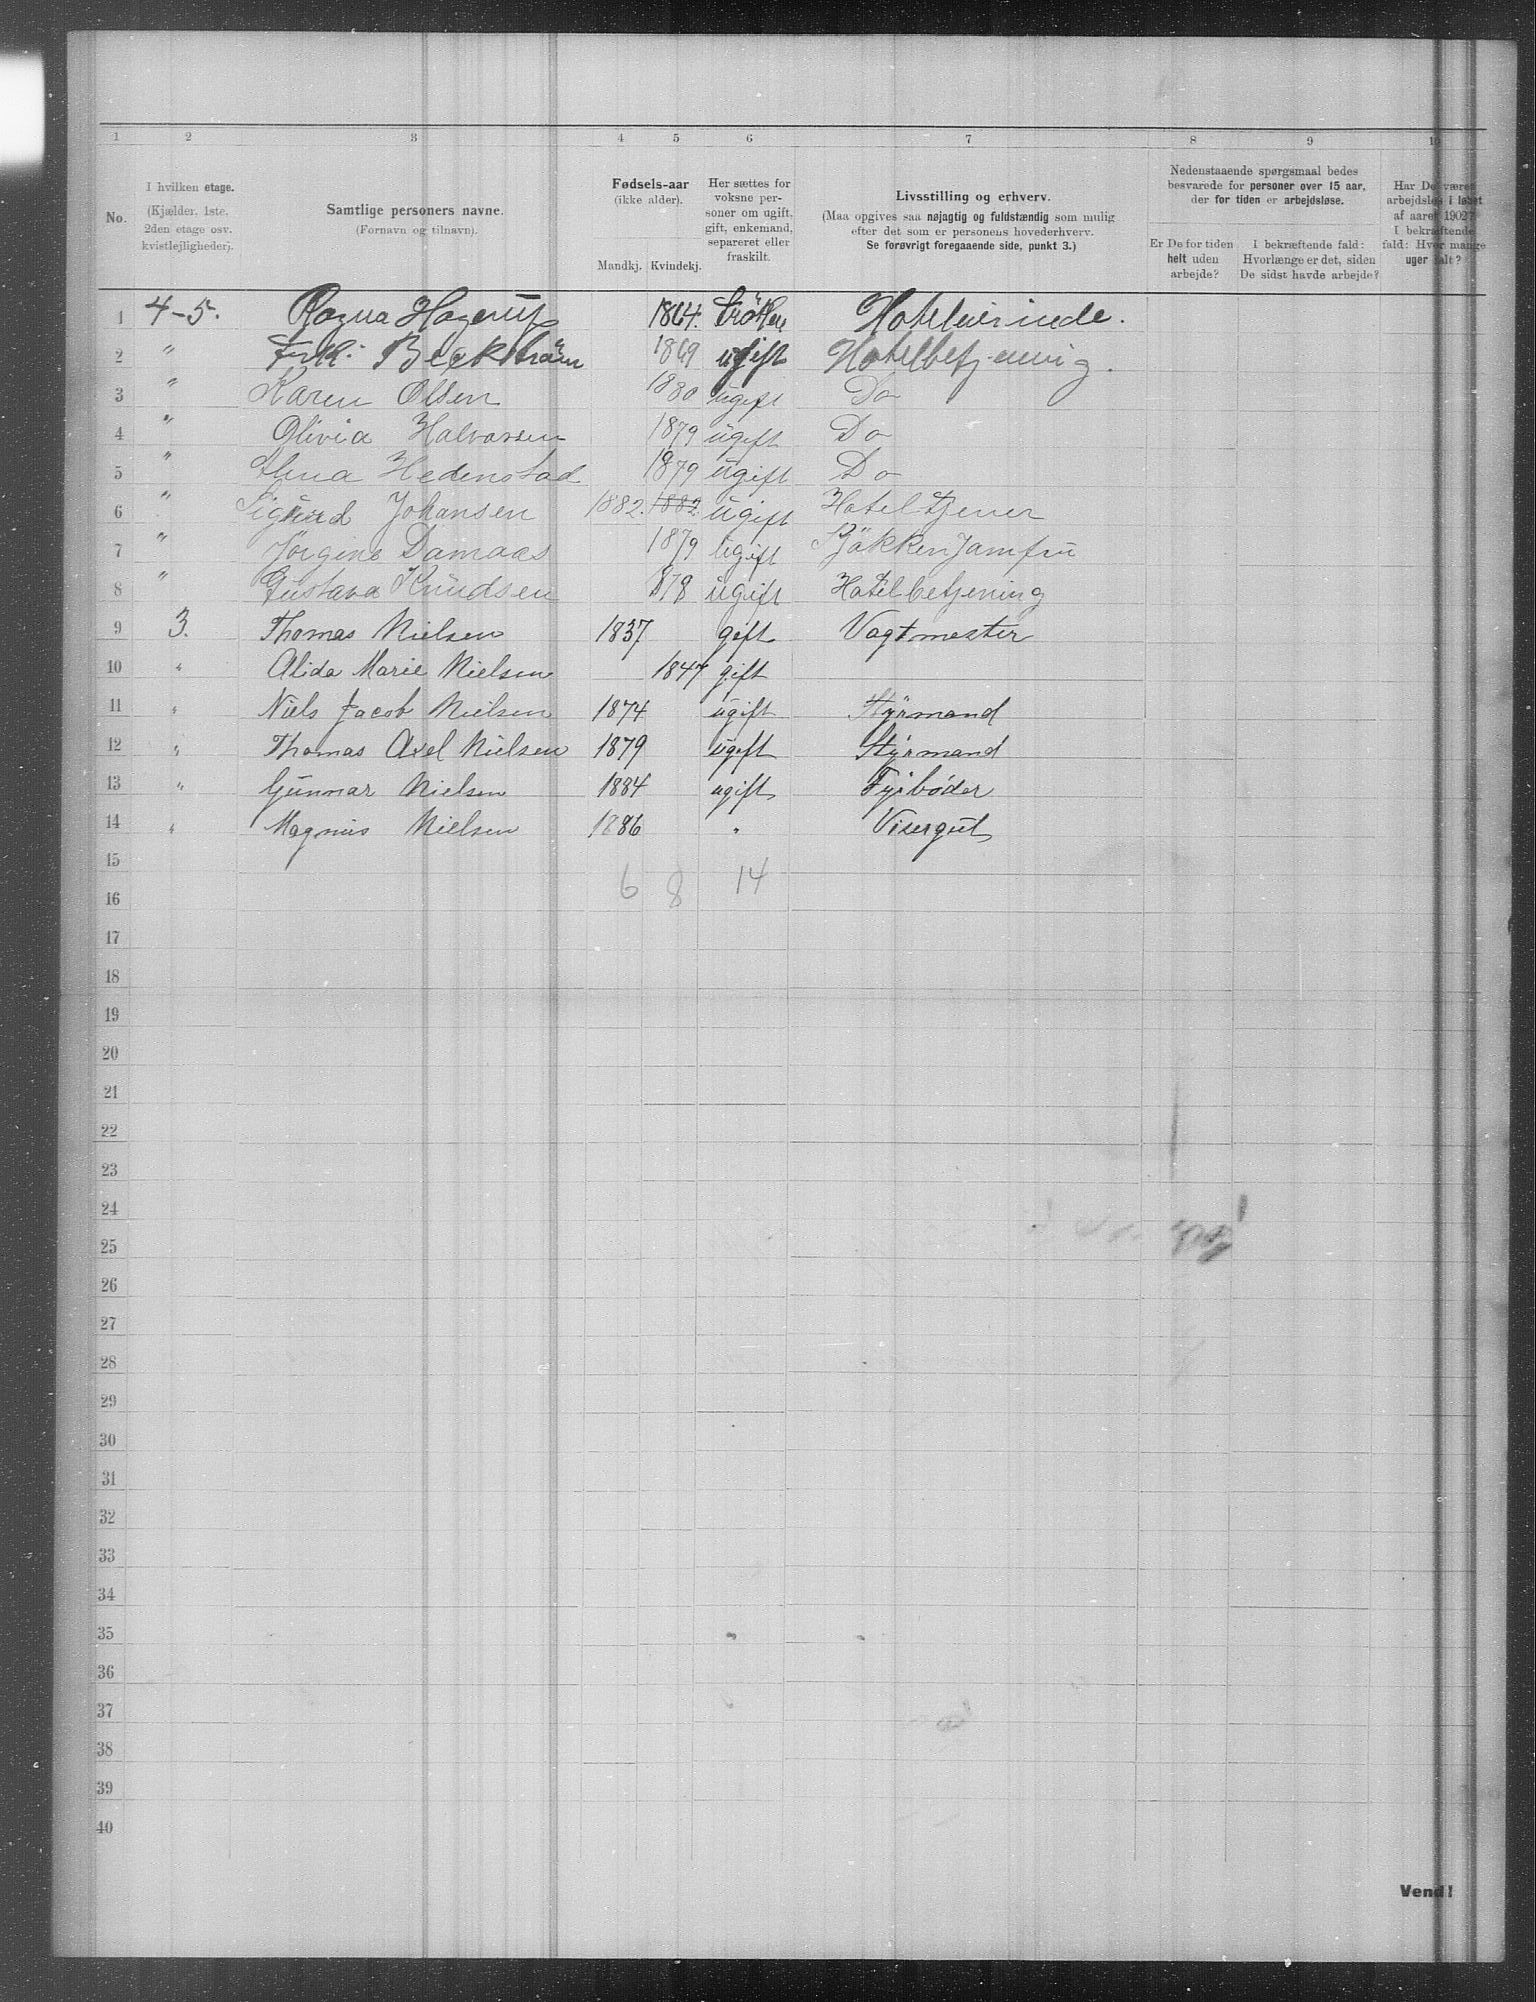 1 2 3 4 5 6 7 8 9 10
No.
I hvilken etage.
(Kjælder, 1ste,
2den etage osv.
kvistlejligheder).
Samtlige personers navne.
(Fornavn og tilnavn).
Fødsels-aar
(ikke alder).
Mandkj. Kvindekj.
Her sættes for
voksne per-
soner om ugift,
gift, enkemand,
separeret eller
fraskilt.
Livsstilling og erhverv.
(Maa opgives saa nøjagtig og fuldstændig som mulig
efter det som er personens hovederhverv.
Se forøvrigt foregaaende side, punkt 3.)
Nedenstaaende spørgsmaal bedes
besvarede for personer over 15 aar,
der for tiden er arbejdsløse.
Er De for tiden
helt uden
arbejde?
I bekræftende fald:
Hvorlænge er det, siden
De sidst havde arbejde?
Har De været
arbejdsløs i løbet
af aaret 1902?
I bekræftende
fald: Hvor mange
uger ialt?
1 4-5. Ragna Hagerup 1864. Hotelværinde.
2 " Frk. Beckström 1869 ugift Hotelbetjening.
3 " Karen Olsen 1880 ugift Do
4 " Olivia Halvorsen 1879 ugift Do
5 " Anna Hedenstad 1879 ugift Do
6 " Sigurd Johansen 1882. 1882 ugift Hoteltjener
7 " Jørgine Damaas 1879 ugift Kjøkkenjomfru
8 " Gustava Knudsen 1878 ugift Hotelbetjening
9 3. Thomas Nielsen 1837 gift Vagtmester
10 " Alida Marie Nielsen 1847 gift
11 " Niels Jacob Nielsen 1874 ugift Styrmand
12 " Thomas Axel Nielsen 1879 ugift Styrmand
13 " Gunnar Nielsen 1884 ugift Fyrbøder
14 " Magnus Nielsen 1886 " Visergut
15
6 8 14
16
17
18
19
20
21
22
23
24
25
26
27
28
29
30
31
32
33
34
35
36
37
38
39
40
Vend!